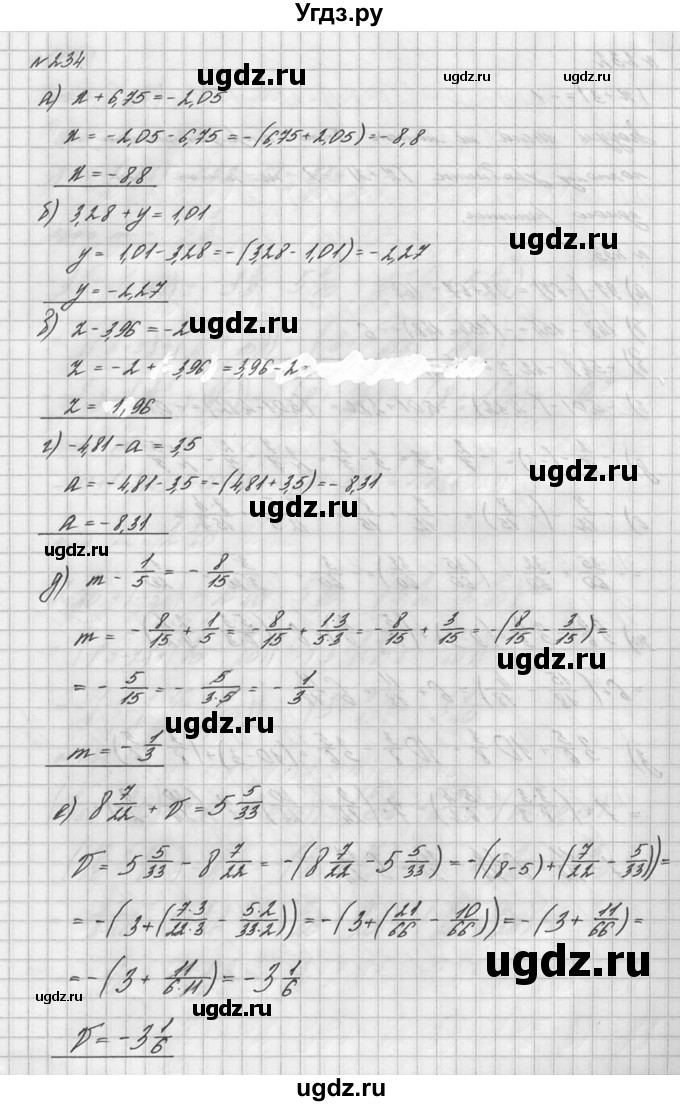 Угдз.ру
№234.
ugdz.ru
ugdz.ru
ugdz.ru
а) x + 6,75 = -2,05
x = -2,05 - 6,75 = -(6,75 + 2,05) = -8,8
x = -8,8
б) 3,28 + y = 1,01
ugdz.ru
y = 1,01 - 3,28 = -(3,28 - 1,01) = -2,27
y = -2,27
в) z - 3,96 = -2
ugdz.ru
z = -2 + 3,96 = 3,96 - 2
z = 1,96
г) -4,81 - a = 3,5
ugdz.ru
a = -4,81 - 3,5 = -(4,81 + 3,5) = -8,31
ugdz.ru
a = -8,31
ugdz.ru
д) m - 1/5 = - 8/15
m = - 8/15 + 1/5 = - 8/15 + 1·3/5·3 = - 8/15 + 3/15 = -(8/15 - 3/15) =
ugdz.ru
= - 5/15 = - 5/3·5 = - 1/3
ugdz.ru
m = - 1/3
е) 8 7/22 + v = 5 5/33
v = 5 5/33 - 8 7/22 = -(8 7/22 - 5 5/33) = -((8-5) + (7/22 - 5/33)) =
= -(3 + (7·3/22·3 - 5·2/33·2)) = -(3 + (21/66 - 10/66)) = -(3 + 11/66) =
ugdz.ru
= -(3 + 11/6·11) = -3 1/6
ugdz.ru
ugdz.ru
v = -3 1/6
ugdz.ru
ugdz.ru